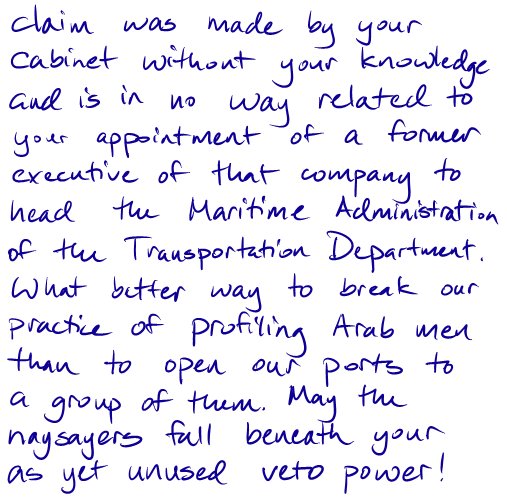 claim was made by your
cabinet without your knowledge
and is in no way related to
your appointment of a former
executive of that company to
head the Maritime Administration
of the Transportation Department.
What better way to break our
practice of profiling Arab men
than to open our ports to
a group of them. May the
naysayers fall beneath your
as yet unused veto power!